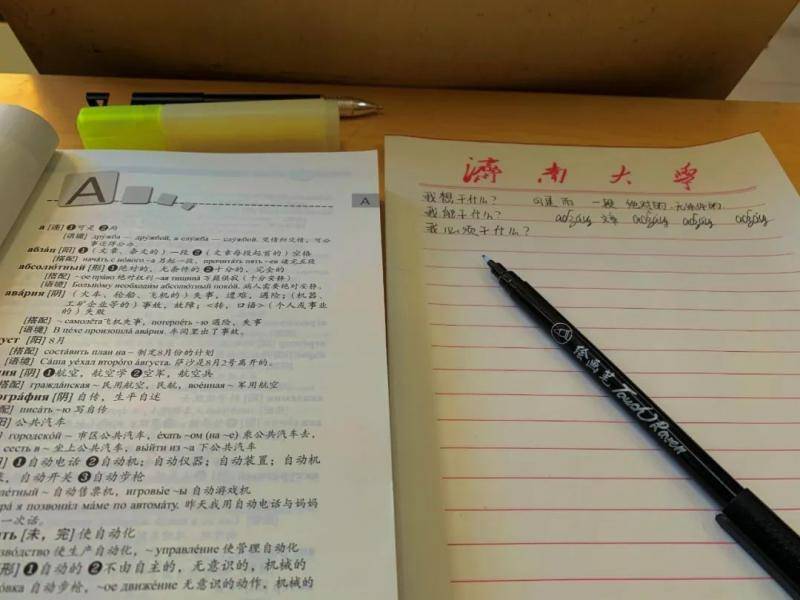 A
A
а [连] ❶可是 ❷而
[语境] дружба — дружбой, а служба — службой. 交情归交情，可公
事还得公办。
абзац [阳] ❶（文章、条文的）一段 ❷（文章每段起首的）空格
[搭配] начать с нового ~а 另起一段，прочитать пять ~ев 读完五段
абсолютный [形] ❶绝对的，无条件的 ❷十分的，完全的
[搭配] ~ое право 绝对权利 ~ая тишина 万籁俱寂（十分安静）
[语境] Больному необходим абсолютный покой. 病人需要绝对安静。
авария [阴]（火车、轮船、飞机的）失事，遭难，遇险；（机器、
工矿企业等的）事故，故障；<转，口语>（个人或事业
的）失败
[搭配] ~ самолёта飞机失事，потерпеть ~ю 遇险，失事
[语境] В цехе произошла авария. 车间里出了事故。
уст [阳] 8月
[搭配] составить план на ~ 制定8月份的计划
[语境] Саша уехал второго августа. 萨沙是8月2号离开的。
ия [阴] ❶航空，航空学 ❷空军，航空兵
搭配] гражданская ~ 民用航空，民航，военная ~ 军用航空
ография [阴] 自传，生平自述
配] писать ~ю 写自传
阳] 公共汽车
городской ~ 市区公共汽车，ехать ~ом (на ~е) 乘公共汽车去，
сесть в ~ 坐上公共汽车，выйти из ~а 下公共汽车
❶自动电话 ❷自动机；自动仪器；自动装置；自动机
，自动开关 ❸自动步枪
летный ~ 自动售票机，игровые ~ы 自动游戏机
ра я позвонил маме по автомату. 昨天我用自动电话与妈妈
一次话。
ть [未，完] 使自动化
зводство 使生产自动化，~ управление 使管理自动化
形] ❶自动的 ❷不由自主的，无意识的，机械的
овка 自动步枪，~ое движение 无意识的动作，机械的
濟南大学
我想干什么？ 一段 绝对的
我能干什么？ абзац абзац абзац абзац
我必须干什么？
绘画笔 Touch Raven